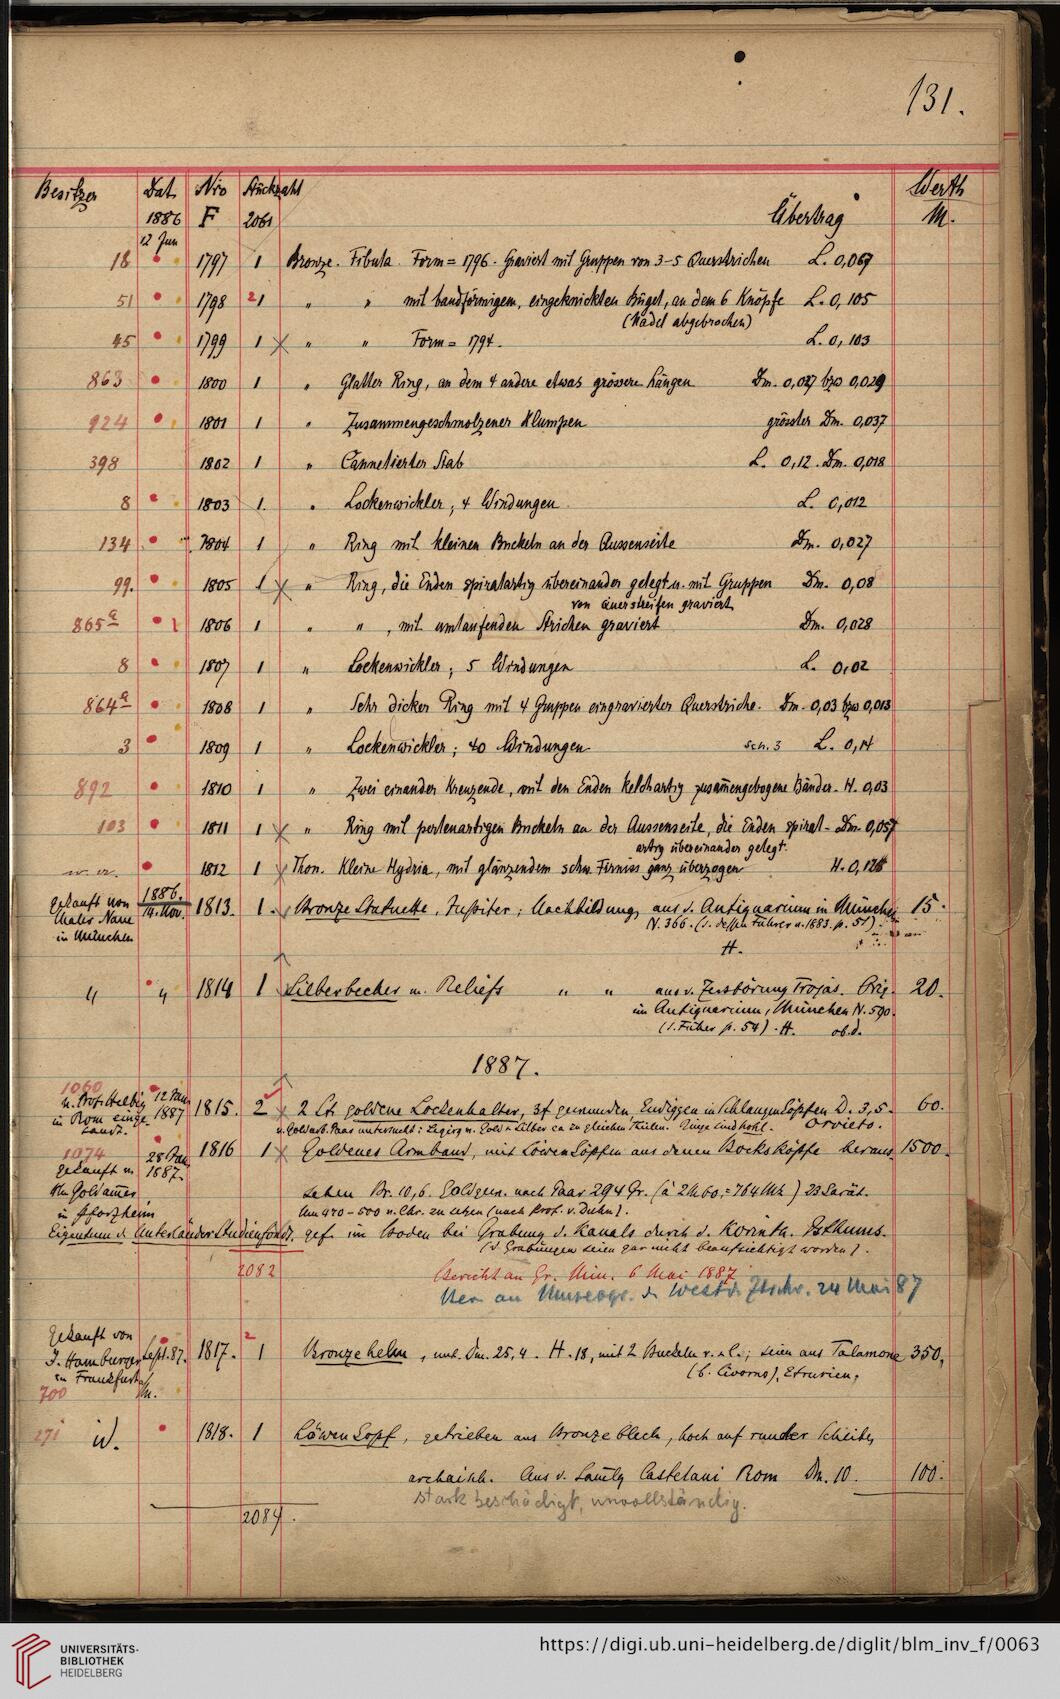 131.
Besitzer Dat. Nro Stückzahl Werth
1886 F 2061 Übertrag M.
12 Jun
18 1797 1 Bronze. Fibula. Form = 1796. Graviert mit Gruppen von 3-5 Querstrichen L. 0,067
51 1798 21 " " mit bandförmigem, eingeknickten Bügel, an dem 6 Knöpfe L. 0,105
(Nadel abgebrochen)
45 1799 1 " " Form = 1794. L. 0,103
863 1800 1 " Glatter Ring, an dem 4 andere etwas grössere hängen Dm. 0,027 bzw 0,029
924 1801 1 " Zusammengeschmolzener Klumpen grösster Dm. 0,037
398 1802 1 " Cannelierter Stab L. 0,12. Dm. 0,018
8 1803 1. " Lockenwickler, 4 Windungen L. 0,012
134 1804 1 " Ring mit kleinen Buckeln an der Aussenseite Dm. 0,027
99. 1805 1 " Ring, die Enden spiralartig übereinander gelegt u. mit Gruppen Dm. 0,08
von Querstreifen graviert
865a 1806 1 " " , mit umlaufenden Strichen graviert Dm. 0,028
8 1807 1 " Lockenwickler; 5 Windungen L. 0,02
864a 1808 1 " Sehr dicker Ring mit 4 Gruppen eingravierter Querstriche. Dm. 0,03 bzw 0,013
3 1809 1 " Lockenwickler; 40 Windungen Sch. 3 L. 0,14
892 1810 1 " Zwei einander Kreuzende, mit den Enden kelchartig zusam̄engebogene Bänder. H. 0,03
103 1811 1 " Ring mit perlenartigen Buckeln an der Aussenseite, die Enden spiral- Dm. 0,057
artig übereinander gelegt.
1812 1 Thon. Kleine Hydria, mit glänzendem schw. Firniss ganz überzogen H. 0,128
gekauft von 1886.
Maler Naue 14. Nov. 1813. 1. Bronze Statuette, Jupiter; Nachbildung, aus d. Antiquarium in München 15.
in München N. 366. (s. dessen Führer v. 1883. p. 51).
H.
" " 1814 1 Silberbecher m. Reliefs " " aus v. Zerstörung Trojas. Orig. 20.
im Antiquarium, München N. 590.
(s. Führer p. 54). H. ob. d.
1887.
1060
v. Prof. Helbig 12 Jan 1815. 2 2 St. goldene Lockenhalter, 3f gewunden, Endiggen in Schlangenköpfen D. 3,5. 60.
in Rom einge- 1887 Orvieto.
sandt. v. Goldarb. Paar untersucht: Legirg v. Gold u Silber ca zu gleichen Theilen. Ringe sind hohl.
1074 28 Jan 1816 1 Goldenes Armband, mit Löwenköpfen aus denen Bocksköpfe heraus- 1500.
gekauft v. 1887.
in Pforzheim sehen Br. 10,6. Goldgew. nach Paar 294 Gr. (à 2 M 60. = 764 Mk) 23 Karät.
Um 470-500 v. Chr. zu setzen (nach Prof. v. Duhn).
Eigentum d. Unterländer Studienfonds. gef. im Boden bei Grabung d. Kanals durch d. Korinth. Isthmus.
(d Grabungen seien gar nicht beaufsichtigt worden).
2082 Bericht an Gr. Min. 6 Mai 1887
Museogr. d. Westd. Ztschr. 24 Mai 87
gekauft von
J. Hamburger Sept. 87. 1817. 2 1 Bronzehelm, unt. Dm. 25,4. H. 18, mit 2 Buckeln r. u l.; seien aus Talamone 350.
in Frankfurt a/M. (b. Livorno), Etrurien.
700
271 id. 1818. 1 Löwenkopf, getrieben aus Bronzeblech, hoch auf runder Scheibe,
archaisch. Aus d. Samlg Castelani Rom Dm. 10. 100.
stark beschädigt, unvollständig.
2084.
UNIVERSITÄTS-
BIBLIOTHEK
HEIDELBERG
https://digi.ub.uni-heidelberg.de/diglit/blm_inv_f/0063